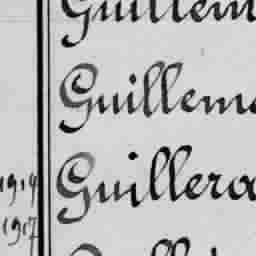 Guillem
Guilleme
1919 Guilleroc
1917